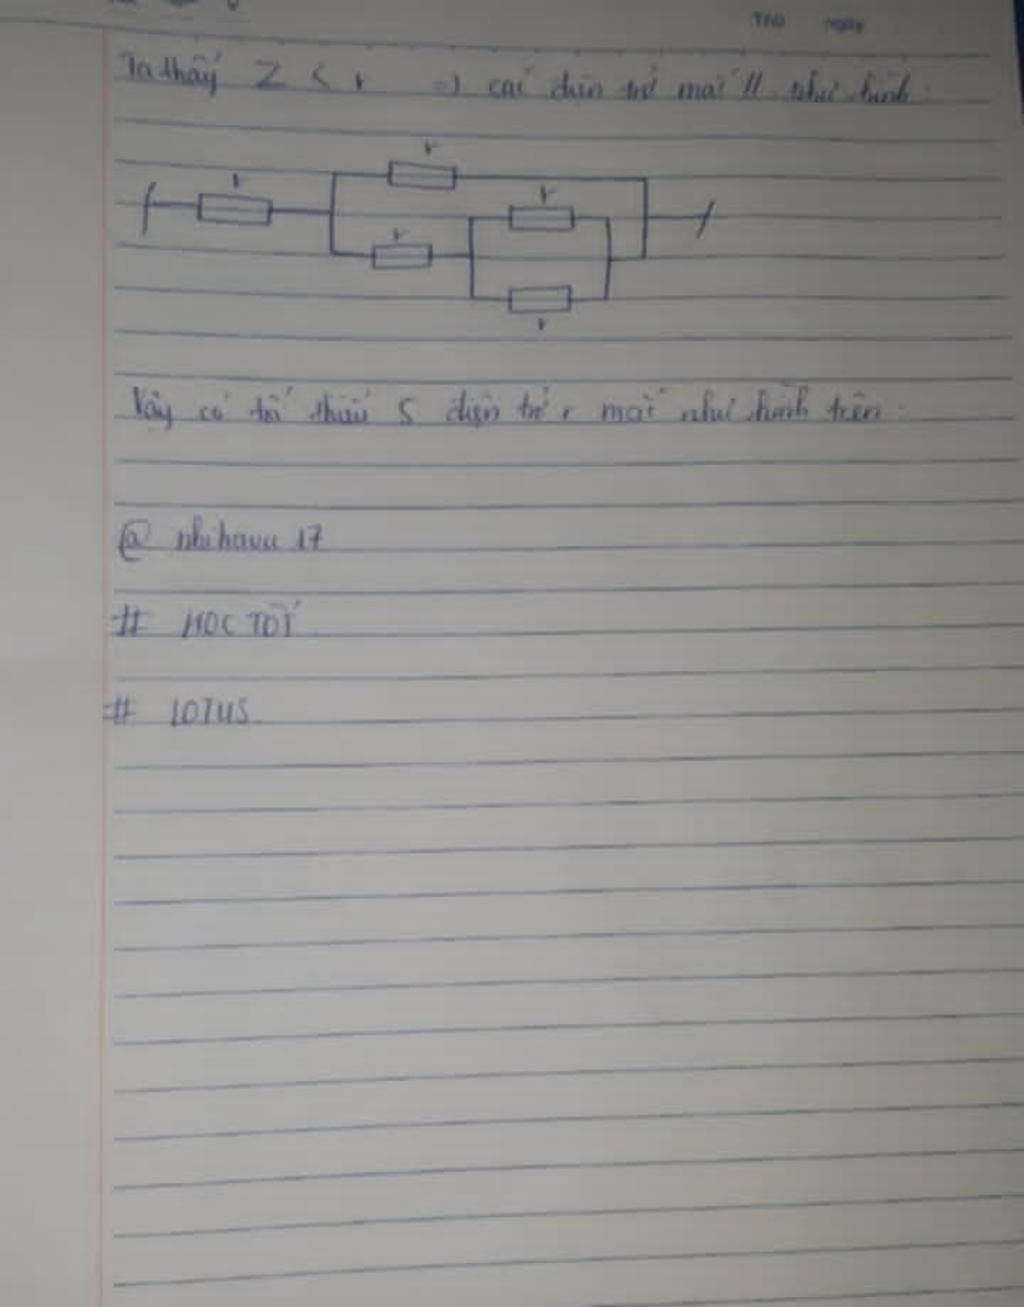 Thứ Ngày
Ta thấy Z < r => các điện trở mắc // như hình:
r
r
r
r
r
Vậy có tối thiểu 5 điện trở r mắc như hình trên.
@ nhihavu 17
# HOC TỐT
# LOTUS